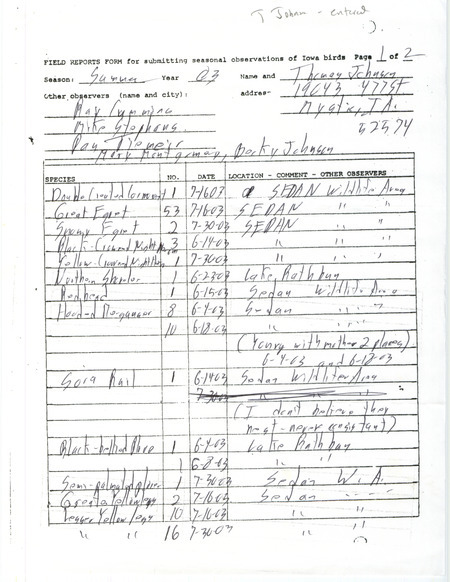 T Johnson - entered
:).
FIELD REPORTS FORM for submitting seasonal observations of Iowa birds Page 1 of 2
Season: Summer Year 03 Name and Thomas Johnson
address- 19643 477 St
Other observers (name and city):
Ray Cummins Mystic, IA.
Mike Stephens 52574
Ray
Mary Montgomery, Becky Johnson
SPECIES NO. DATE LOCATION - COMMENT - OTHER OBSERVERS
Double Crested Cormorant 1 7-16-03 SEDAN Wildlife Area
Great Egret 53 7-16-03 SEDAN " "
Snowy Egret 2 7-30-03 SEDAN " "
Black-Crowned Night Heron 3 6-14-03 " "
Yellow-Crowned Night Heron 1 7-30-03 " "
Northern Shoveler 1 6-23-03 Lake Rathbun
Redhead 1 6-15-03 Sedan Wildlife Area
Hooded Merganser 8 6-4-03 Sedan " "
10 6-18-03 " "
(Young with mother 2 places)
6-4-03 and 6-18-03
Sora Rail 1 6-14-03 Sedan Wildlife Area
7-30-03
(I don't believe they
nest - never consistant)
Black-bellied Plover 1 6-4-03 Lake Rathbun
1 6-8-03 " "
Semi-palmated plover 1 7-30-03 Sedan W. A.
Greater yellowlegs 2 7-16-03 Sedan " "
Lesser Yellowlegs 10 7-16-03 " "
" " 16 7-30-03 " "